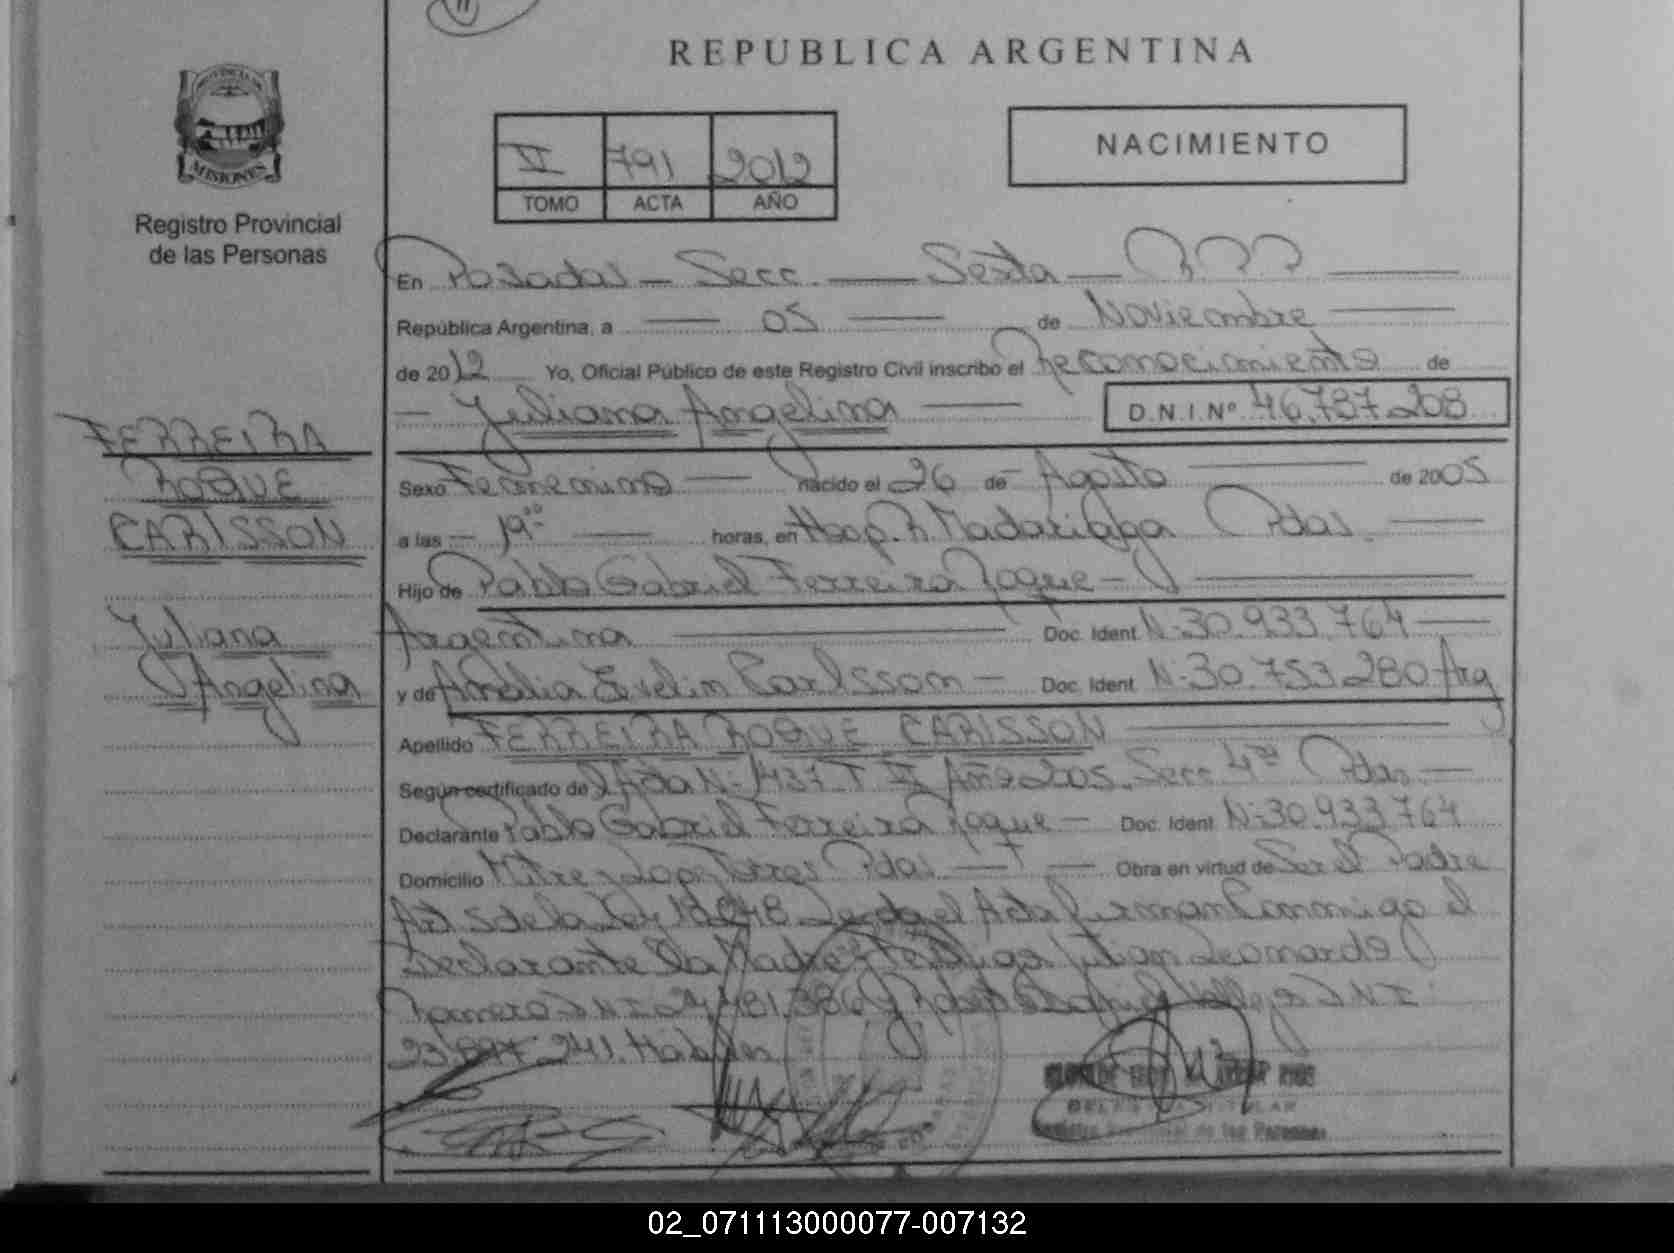 REPUBLICA ARGENTINA
MISIONES
Registro Provincial
de las Personas
VI 791 2012
TOMO ACTA AÑO
NACIMIENTO
En Posadas - Secc. - Sexta -
República Argentina, a 05 de Noviembre
de 2012 Yo, Oficial Público de este Registro Civil inscribo el Reconocimiento de
Juliana Angelina D.N.I.Nº 46.787.208
FERREIRA
ROQUE
CARISSON
Juliana
Angelina
Sexo Femenino nacido el 26 de Agosto de 2005
a las 19 horas, en Hosp. R. Madariaga Pdas.
Hijo de Pablo Gabriel Ferreira Roque
Argentina Doc. Ident N-30.933.764
y de Amalia Evelin Carlsson - Doc. Ident N-30.753.280 Arg
Apellido FERREIRA ROQUE CARISSON
Según certificado de Acta N- 1437 T Año 2005. Secc 4ta Pdas
Declarante Pablo Gabriel Ferreira Roque - Doc. Ident N-30.933.764
Domicilio Mitre y Lopez Torres Pdas Obra en virtud de Ser el Padre
Art 5 de la Ley 18248 Leida el Acta firman Conmigo el
Declarante la Madre y Testigos Julian Leonardo
Romero D.N.I 24.481.386 y D.N.I
23.897.241.
Registro Provincial de las Personas
02_071113000077-007132